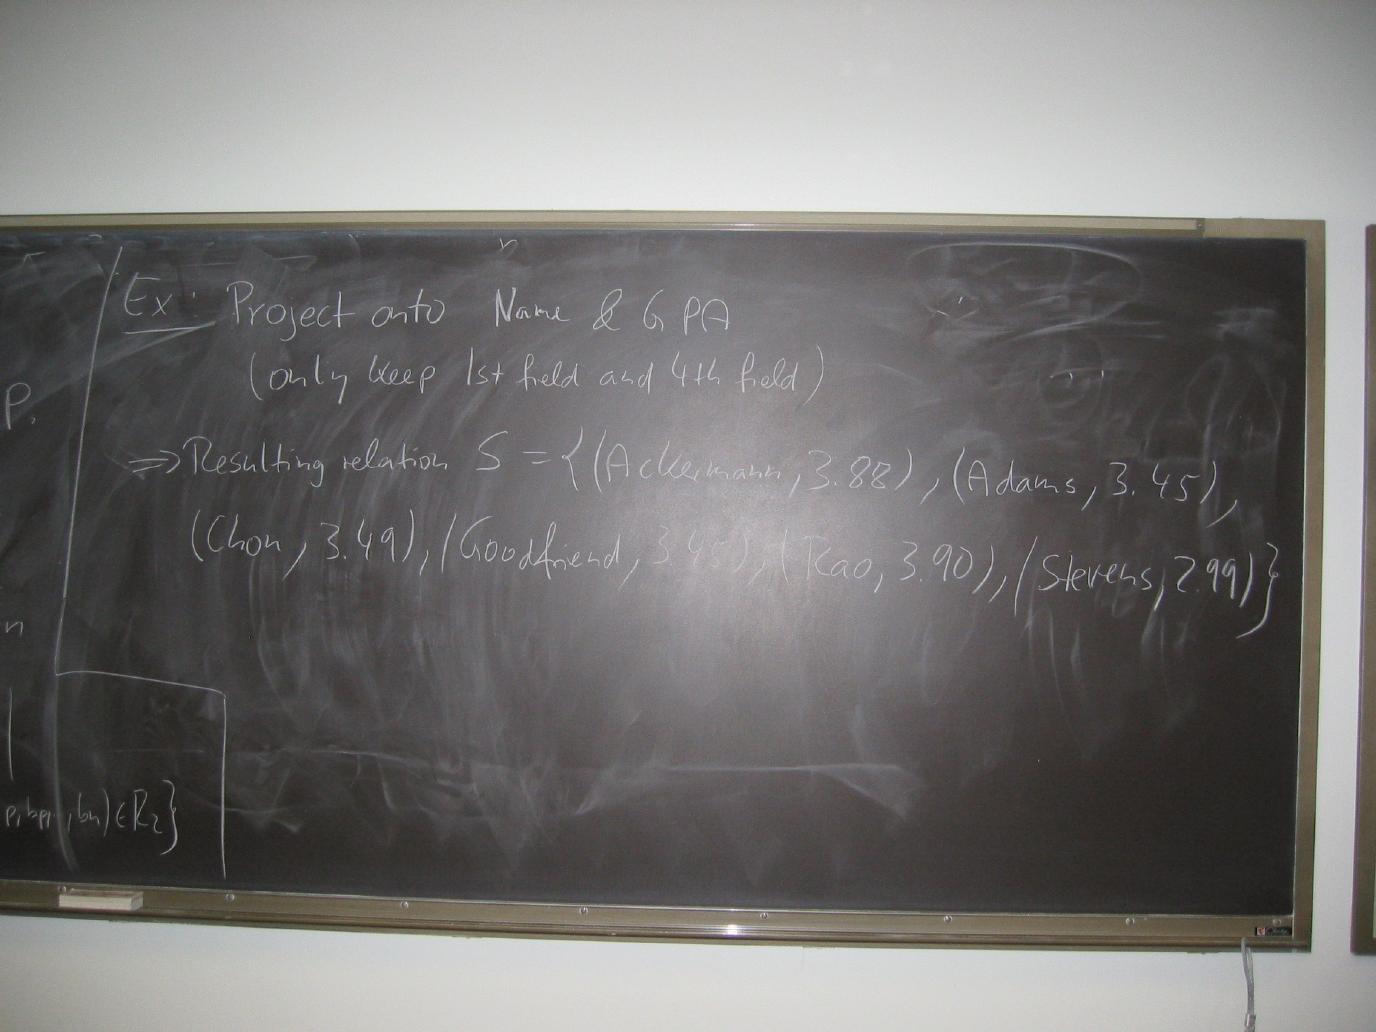 Ex: Project onto Name & GPA
(only keep 1st field and 4th field)
⇒ Resulting relation S = {(Ackermann, 3.88), (Adams, 3.45),
(Chou, 3.49), (Goodfriend, 3.45), (Rao, 3.90), (Stevens, 2.99)}
p.
n
, bn) ∈ R₂}